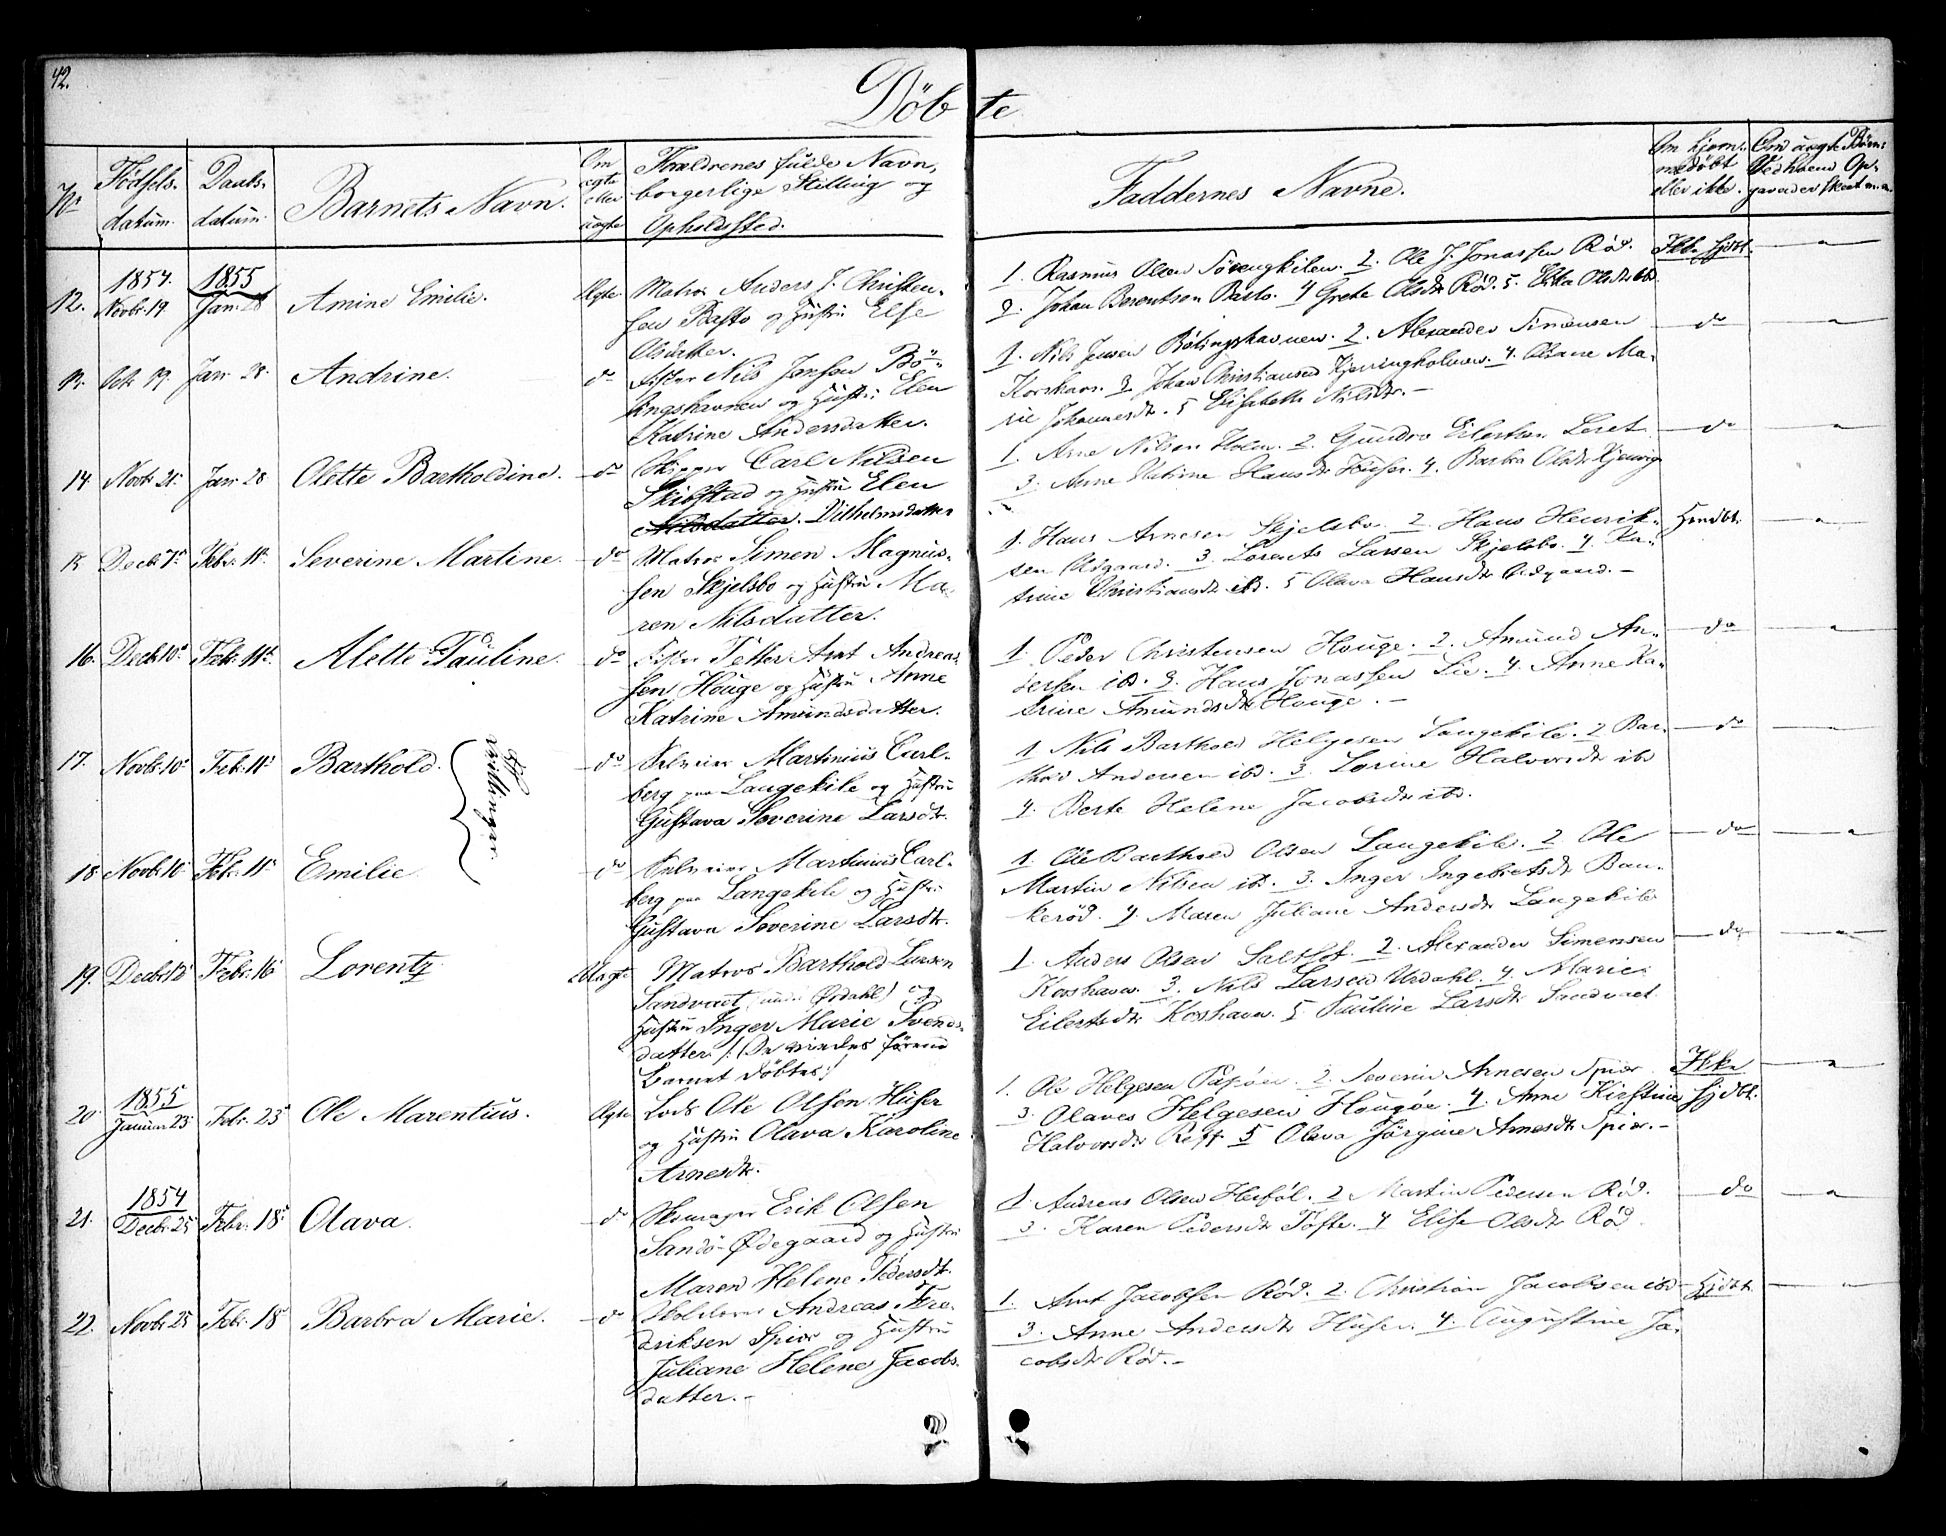 42.
Døbte
No
Fødsels-
datum.
Daabs-
datum.
Barnets Navn.
Om
ægte
eller
uægte
Forældrenes fulde Navn,
borgerlige Stilling og
Opholdssted.
Faddernes Navne.
Om hjem-
medøbt
eller ikke.
12.
1854.
Novbr. 19.
1855
Jan. 28
Amine Emilie.
Ægte
Matros Anders J. Christen-
sen Basto og Hustru Else
Olsdatter.
1. Rasmus Olsen 2. Ole J. Jonassen Rød.
3. Johan Berentsen Basto. 4 Grete Olsdtr Rød. 5.
Ikke hjdbt.
13. Octr 19. Jan 28. Andrine.
do
Fisker Nils Jensen Bø-
lingshavnen og Hustru Elen
Katrine Andersdatter.
1. Nils Jensen Bølingshavnen. 2. Alexander Simensen
Korshavn. 3 Johan Christiansen Kjerringholmen. 4. Olsane Ma-
rie Johannesdtr. 5 Elisabeth Nilsdtr. -
do
14. Novbr 21. Jan 28 Olette Bartholdine.
do
Skipper Carl Nilsen
Skibstad og Hustru Elen
Nilsdatter. Vilhelmsdatter
1. Arne Nilsen Holm. 2. Gundro Eilertsen Leret
3. Anne Katrine Hansdtr Huser. 4. Barbra Olsdtr
do
15 Decbr 7de Febr. 11te Severine Martine.
do
Matros Simen Magnus-
sen Skjelsbo og Hustru Ma-
ren Nilsdatter.
1. Hans Arnesen Skjelsbo. 2. Hans Henrik-
sen Ødgaard. 3. Lorents Larsen Skjelsbo. 4. Ka-
trine Christiansdtr ibd. 5 Olava Hansdtr Ødgaard. -
Hjmdbt.
16. Decbr 10de Febr. 11te Alette Pauline.
do
Fisker Petter Arnt Andreas-
sen Houge og Hustru Anne
Katrine Amundsdatter.
1. Peder Christensen Houge. 2. Amund An-
dersen ibd. 3. Hans Jonassen Lie. 4. Anne Ka-
trine Amundsdtr Houge. -
do
17. Novbr 10de Febr. 11te Barthold.
Tvillinger.
do
Selveier Martinius Carl-
berg paa Langekile og Hustru
Gustava Severine Larsdtr.
1 Nils Barthold Helgesen Langekile. 2 Bar-
thol Andersen ibd. 3. Lorine Halvorsdtr ibd
4. Berte Helene Jacobsdtr ibd.
do
18 Novbr 10 Febr. 11te Emilie.
do
Selveier Martinius Carl-
berg paa Langekile og Hustru
Gustava Severine Larsdtr.
1. Ole Barthold Olsen Langekile. 2 Ole
Martin Nilsen ibd. 3. Inger Ingebretsdtr Ban-
kerød. 4. Maren Juliane Andersdtr Langekile
do
19. Decbr 12 Febr. 16 Lorentz
Uægte
Matros Barthold Larsen
Sandvaet, Ørdahl) og
Hustru Inger Marie Svends-
datter. /: De viedes førend
Barnet døbtes:/
1. Anders Olsen Salthol. 2. Alexander Simensen
Korshavn. 3. Nils Larsen Urdahl. 4. Marie
Eilertsdtr Korshavn. 5 Pauline Larsdtr Sandvaet.
do
20.
1855
Januar 23.
Febr. 25 Ole Marentius.
Ægte
Lods Ole Olsen Huser
og Hustru Olava Karoline
Arnesdtr.
1. Ole Helgesen 2. Severin Arnesen Spjær
3. Olaves Helgesen Hougøe. 4. Anne Kirstine
Halvorsdtr Reff. 5 Olava Jørgine Arnesdtr Spjær. -
Ikke
hjdbt.
21.
1854
Decbr. 25
Febr. 18de Olava.
do
Skomager Erik Olsen
Sandø-Ødegaard og Hustru
Maren Helene Pedersdtr.
1. Andreas Olsen Herføl. 2 Martin Pedersen Rød.
3. Karen Pedersdtr Tofte. 4 Elise Olsdtr Rød.
do
22. Novbr 25 Febr. 18 Barbra Marie.
do
Skolelærer Andreas Fre-
deriksen Spjær og Hustru
Juliane Helene Jacobs-
datter. -
1. Arnt Jacobsen Rød. 2. Christian Jacobsen ibd
3. Anne Andersdtr Huser. 4. Augustine Ja-
cobsdtr Rød. -
Hjdbt.